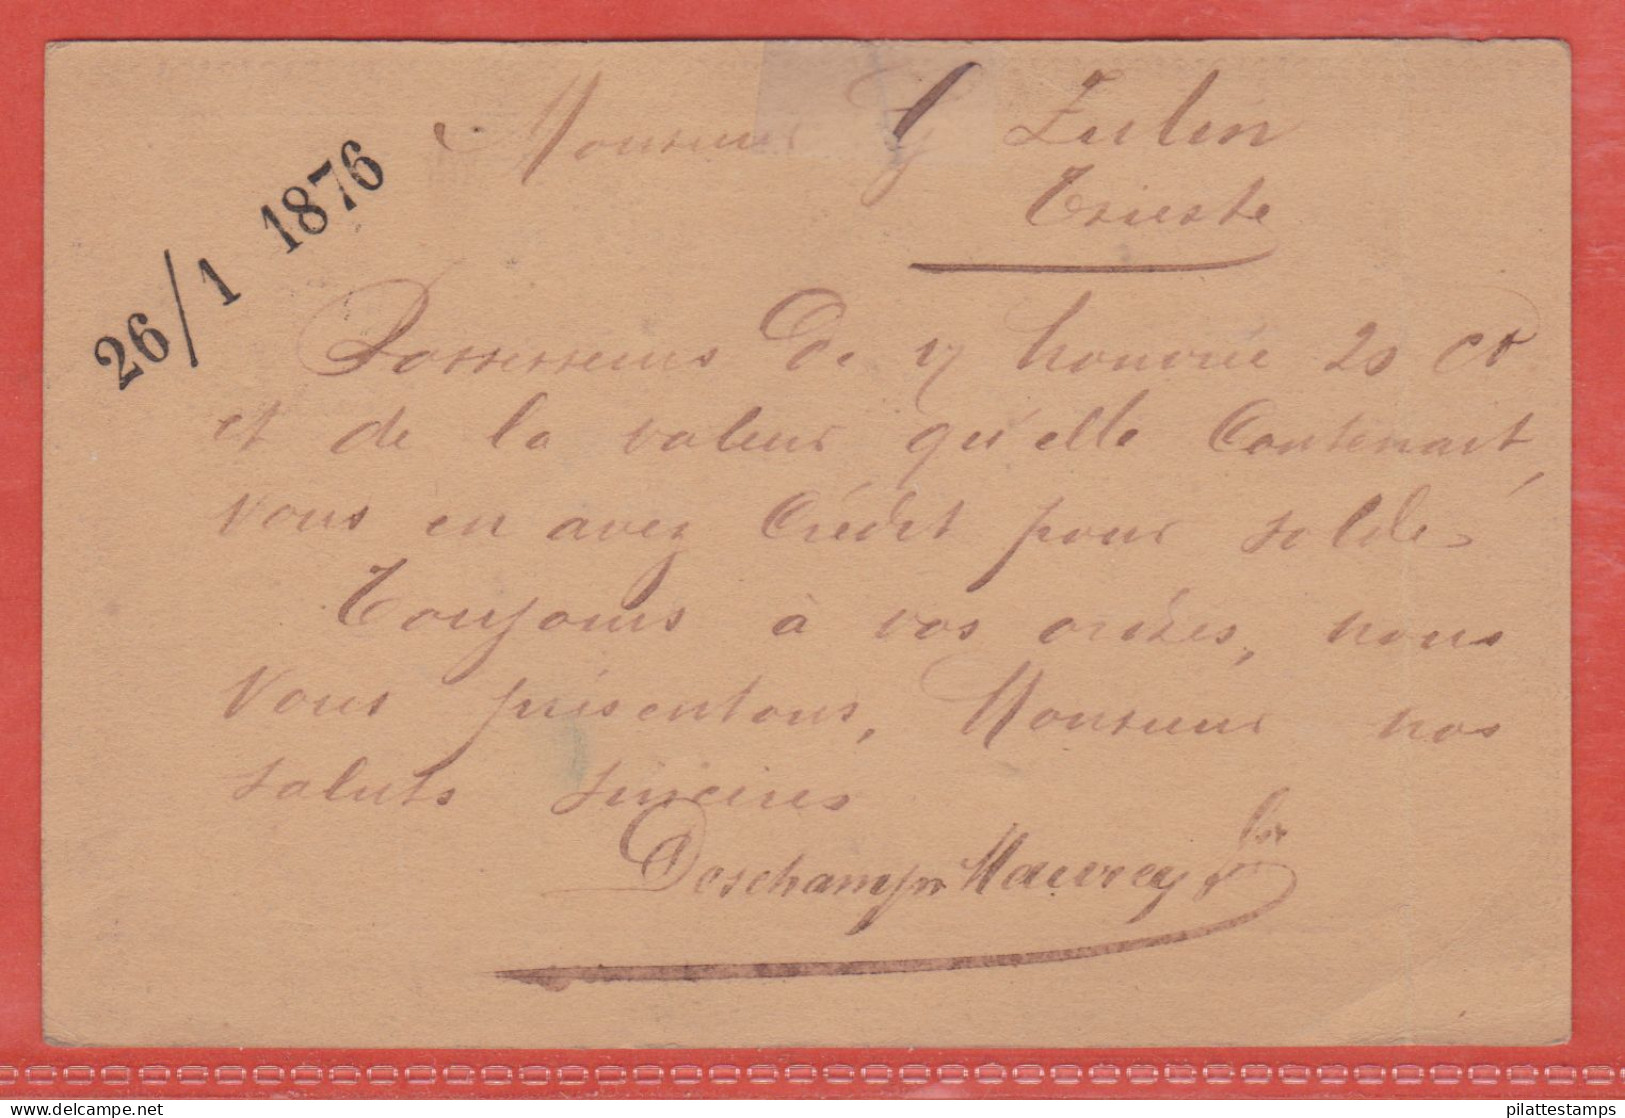 26/1 1876
Monsieur G Zulin
Trieste
Possesseurs de v/ honorée 20 Ct
et de la valeur qu'elle Contenait,
Vous en avez Crédit pour solde.
Toujours à vos ordres, nous
Vous présentons, Monsieur nos
saluts sincères
Deschamps Mauvrey
delcampe.net
pilattestamps